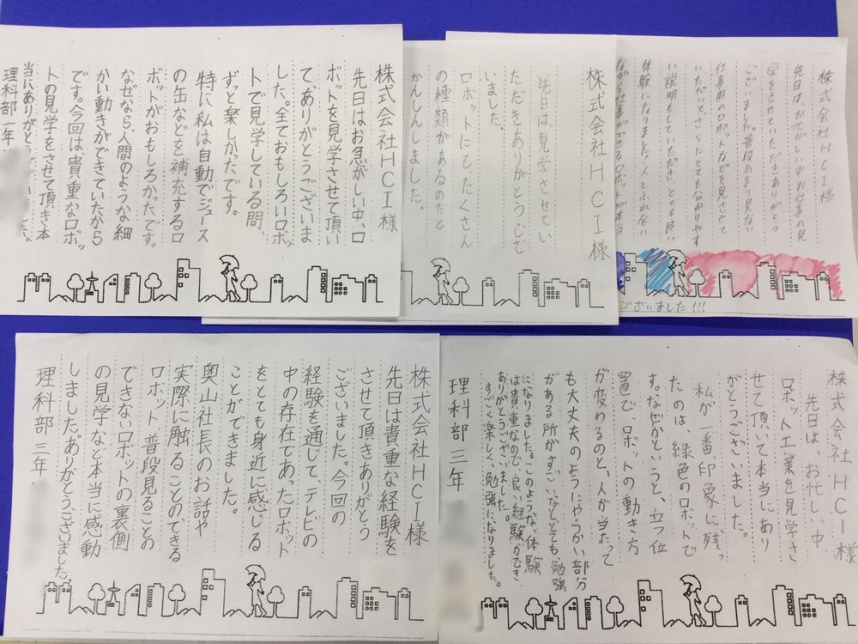 株式会社HCI様
先日はお急がしい中、ロ
ボットを見学させて頂い
て、ありがとうございま
した。全ておもしろいロボッ
トで見学している間、
ずっと楽しかったです。
特に私は自動でジュース
の缶などを補充するロ
ボットがおもしろかったです。
なぜなら、人間のような細
かい動きができていたから
です。今回は貴重なロボッ
トの見学をさせて頂き本
当にありがとうございました。
理科部一年
株式会社HCI様
先日は見学させてい
ただきありがとうござ
いました。
ロボットにもたくさん
の種類があるのだと
かんしんしました。
株式会社HCI様
先日は、お忙しい中お仕事の見
学をさせていただきありがとう
ございました。普段あまり見ない
仕事用ロボットなどを見させて
いただいて、
い説明もしていただき、とても良い
体験になりました。人とふれ合い
ございました!!!
株式会社HCI様
先日は貴重な経験を
させて頂きありがとう
ございました。今回の
経験を通じて、テレビの
中の存在であったロボット
をとても身近に感じる
ことができました。
奥山社長のお話や
実際に触ることのできる
ロボット、普段見ることの
できないロボットの裏側
の見学など本当に感動
しました。ありがとうございました。
理科部三年
株式会社HCI様
先日は、お忙しい中
ロボット工業を見学さ
せて頂いて本当にあり
がとうございました。
私が一番印象に残っ
たのは、緑色のロボットで
す。なぜかというと、立つ位
置で、ロボットの動き方
が変わるのと、人が当たって
も大丈夫のようにやらかい部分
がある所がすごいなととても、勉強
になりました。このような、体験
は貴重なので、良い経験ができ、
ありがとうございました。
すごく楽しく、勉強になりました。
理科部三年